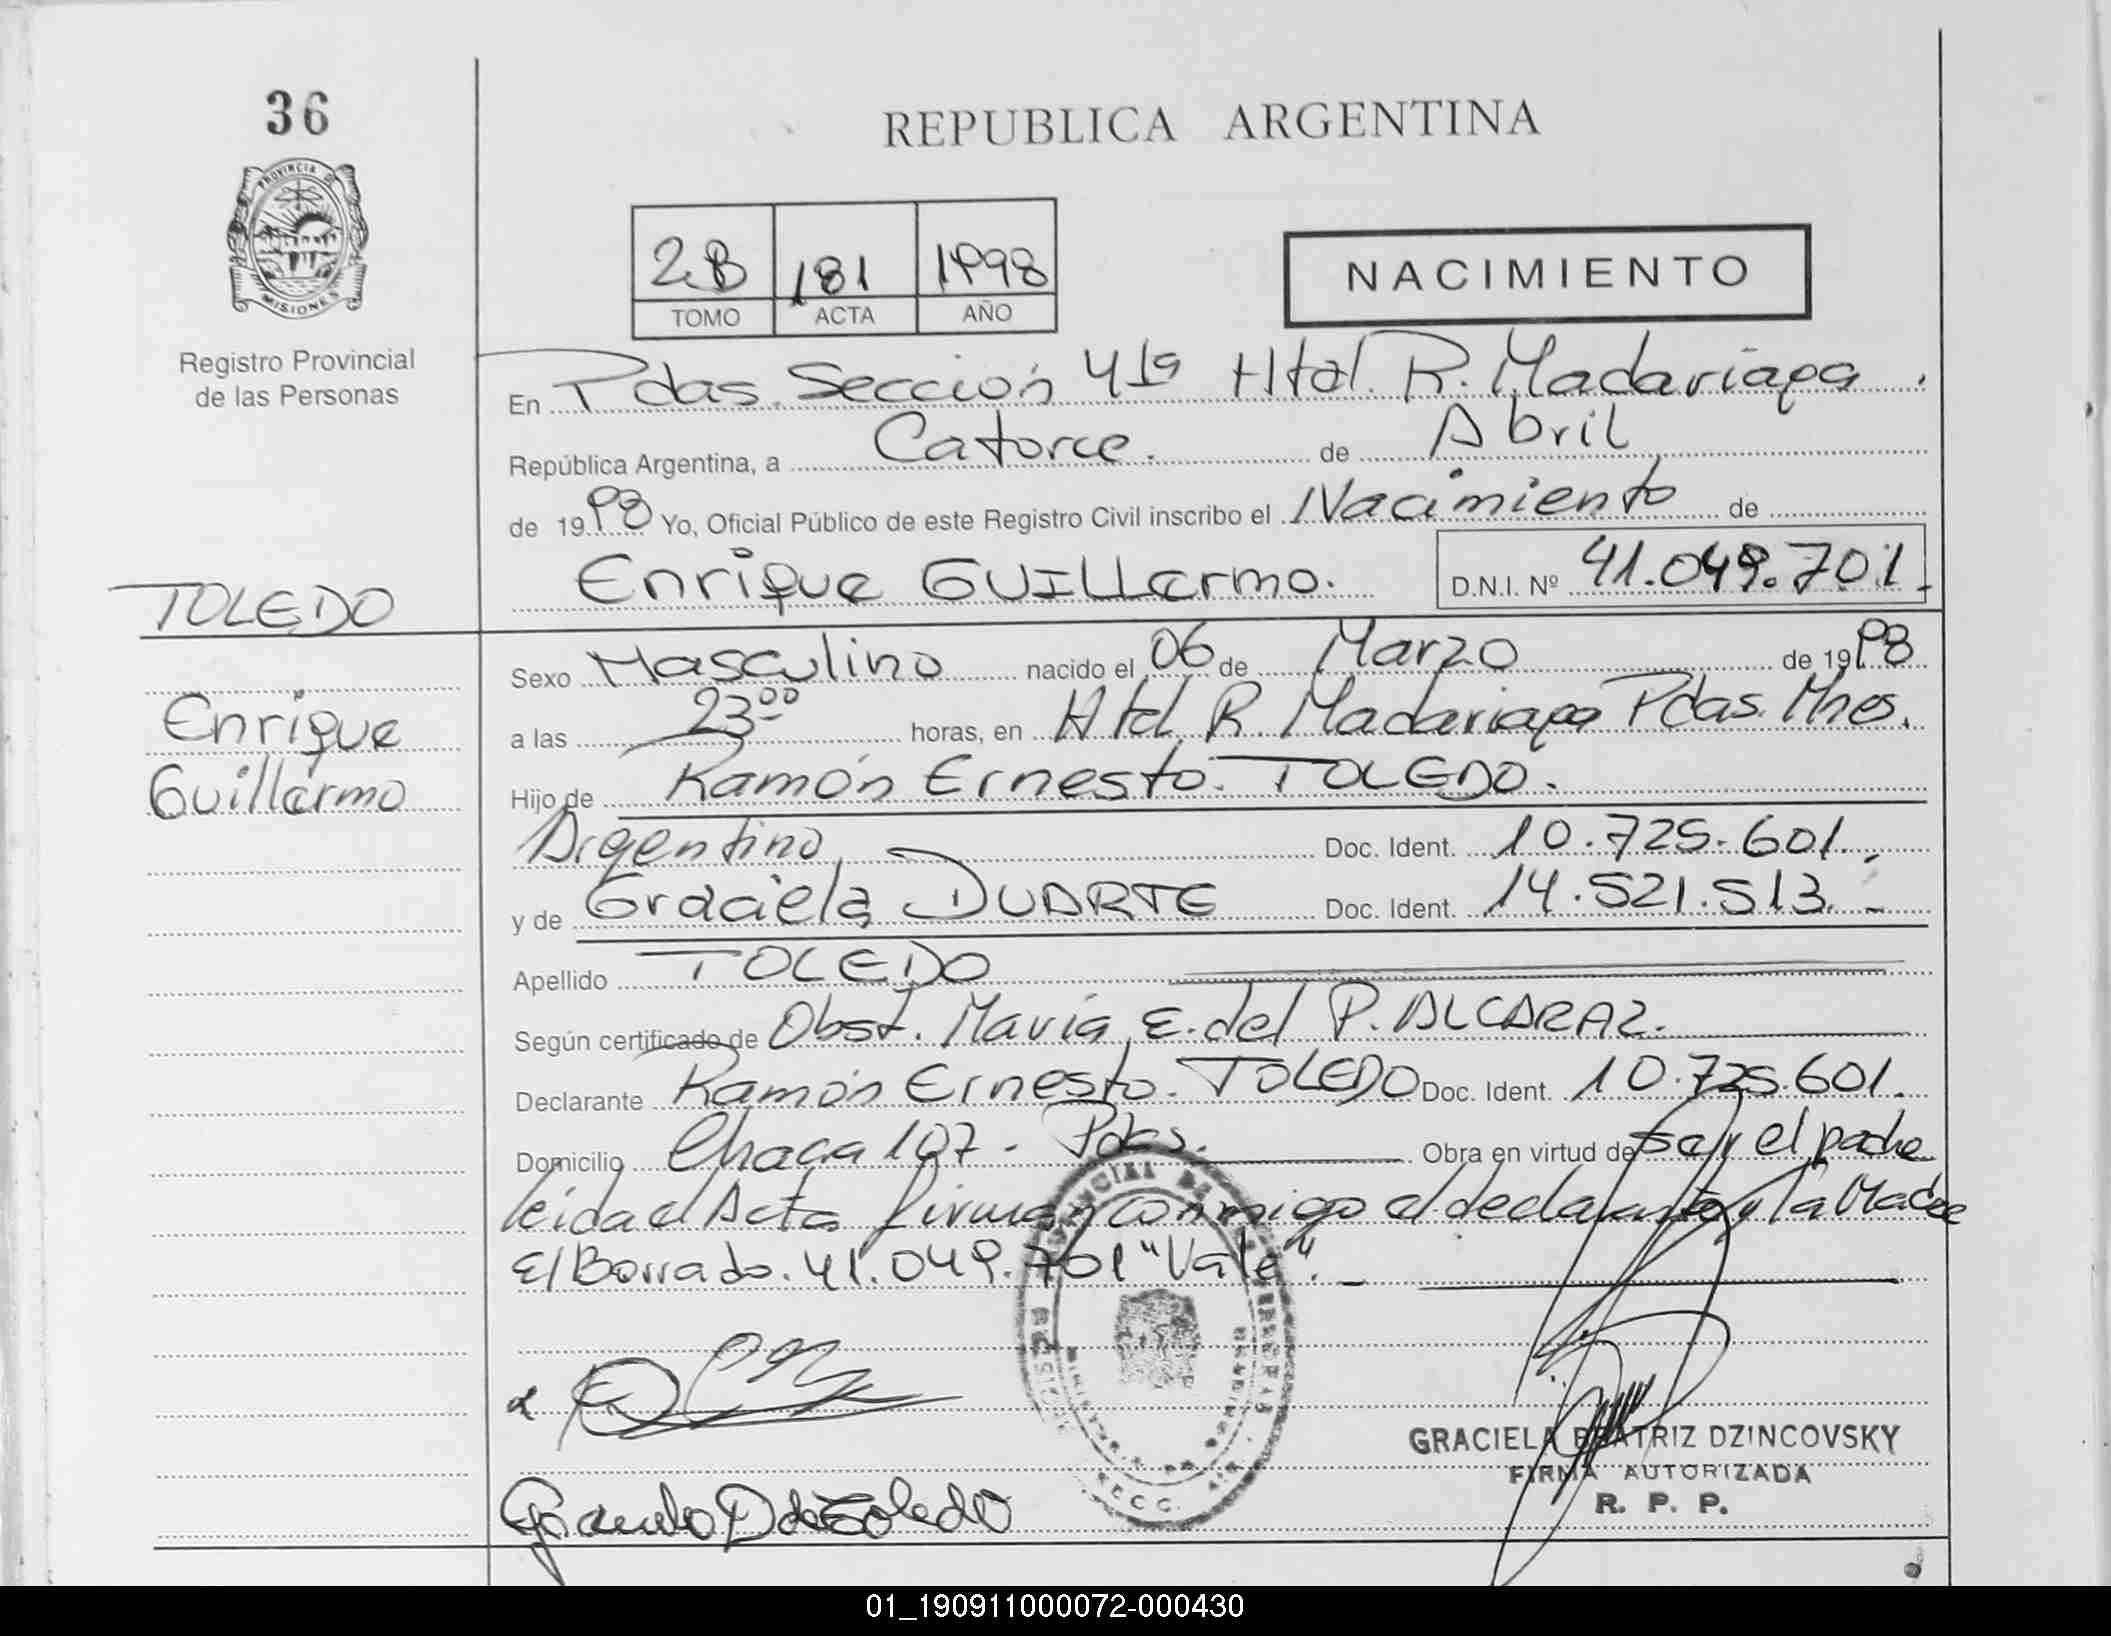 36
REPUBLICA ARGENTINA
PROVINCIA DE
MISIONES
Registro Provincial
de las Personas
2B 181 1998
TOMO ACTA AÑO
NACIMIENTO
En Pdas. Sección 4ta Htal. R. Madariaga.
República Argentina, a Catorce. de Abril
de 1998 Yo, Oficial Público de este Registro Civil inscribo el Nacimiento de
Enrique GUILLermo. D.N.I. Nº 41.049.701.-
TOLEDO
Enrique
Guillermo
Sexo Masculino nacido el 06 de Marzo de 1998
a las 2300 horas, en Htal. R. Madariaga Pdas. Mnes.
Hijo de Ramón Ernesto. TOLEDO.
Argentino Doc. Ident. 10.725.601.
y de Graciela DUARTE Doc. Ident. 14.521.513.-
Apellido TOLEDO
Según certificado de Obst. María E. del P. ALCARAZ.
Declarante Ramón Ernesto. TOLEDO Doc. Ident. 10.725.601.
Domicilio Chaca 107 - Pdas. Obra en virtud de ser el padre
leida el Acta firman conmigo el declarante y la Madre
El Borrado. 41.049.701 "Vale". -
Graciela D de Toledo
GRACIELA BEATRIZ DZINCOVSKY
FIRMA AUTORIZADA
R. P. P.
01_190911000072-000430